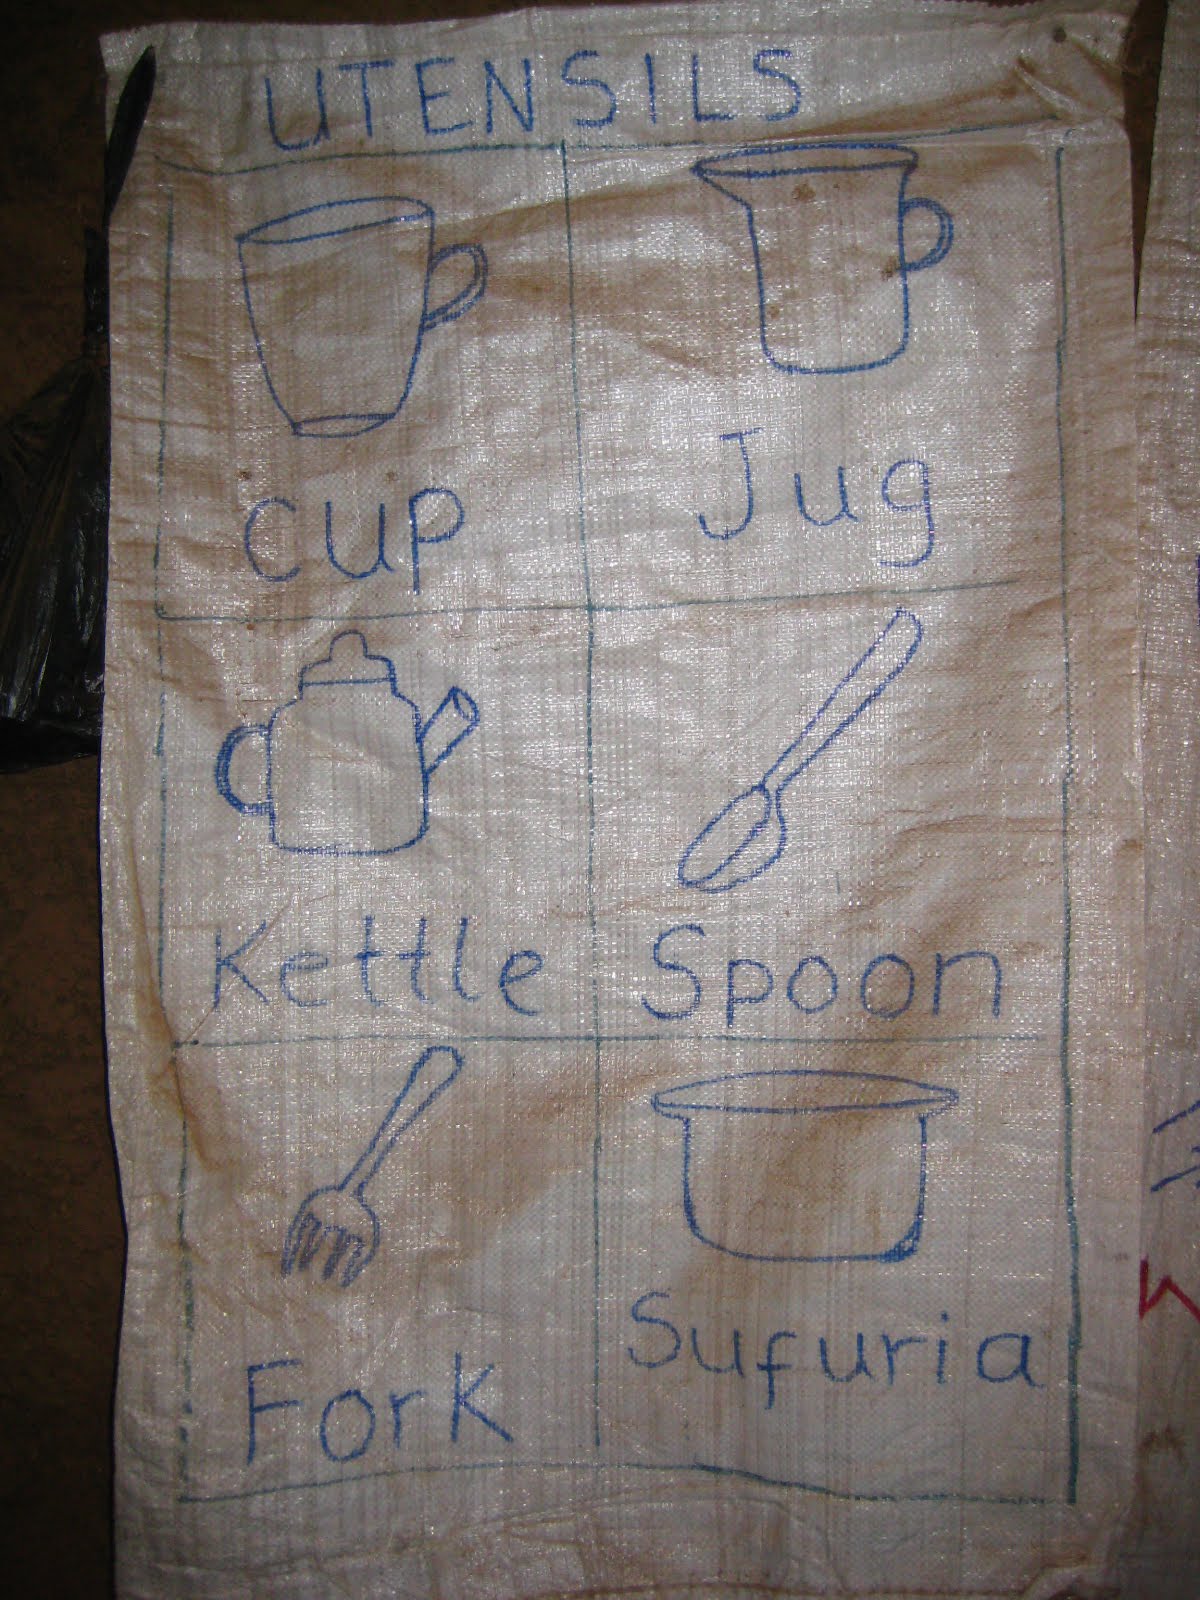 UTENSILS
cup
Jug
Kettle
Spoon
Fork
Sufuria